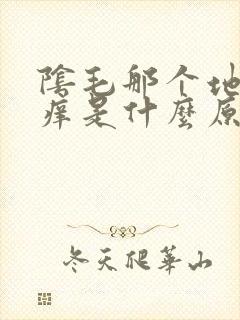 陰毛那个地
痒是什麽原
冬天爬華山